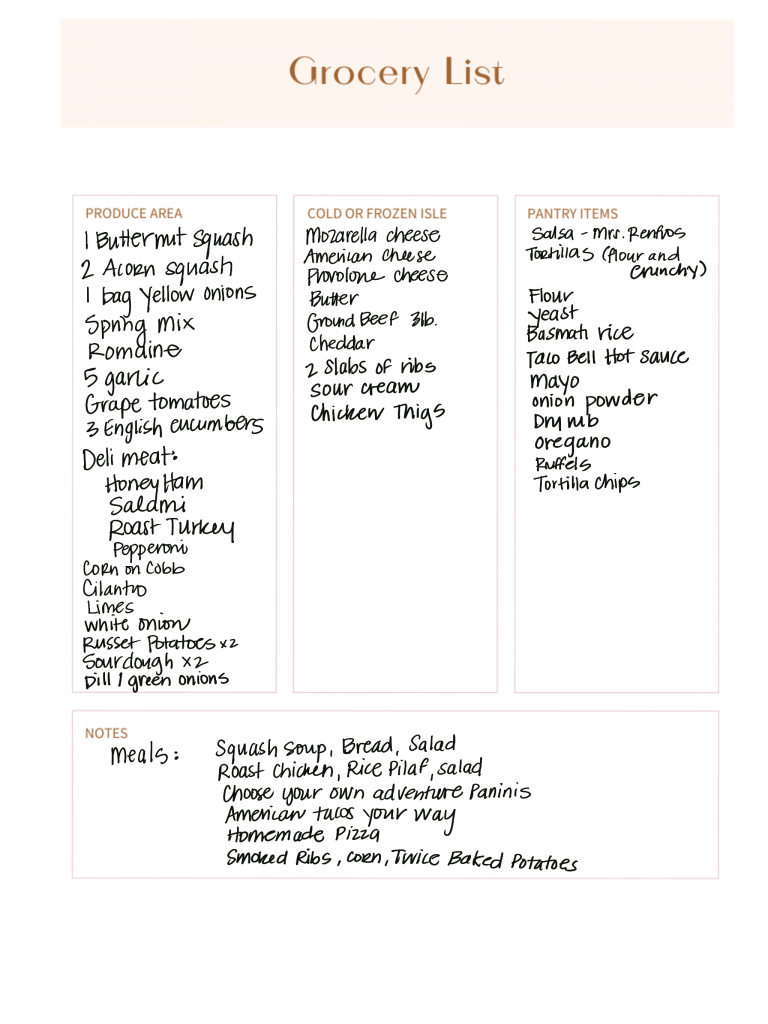 Grocery List
PRODUCE AREA
1 Butternut squash
2 Acorn squash
1 bag yellow onions
Spring mix
Romaine
5 garlic
Grape tomatoes
3 English cucumbers
Deli meat:
Honey Ham
Salami
Roast Turkey
Pepperoni
Corn on Cobb
Cilantro
Limes
white onion
Russet Potatoes x2
Sourdough x2
Dill / green onions
COLD OR FROZEN ISLE
Mozarella cheese
American cheese
Provolone cheese
Butter
Ground Beef 3lb.
Cheddar
2 slabs of ribs
sour cream
Chicken Thigs
PANTRY ITEMS
Salsa - Mrs. Renfros
Tortillas (flour and
crunchy)
Flour
yeast
Basmati rice
Taco Bell Hot sauce
Mayo
onion powder
Dry rub
oregano
Ruffels
Tortilla chips
NOTES
Meals:
Squash soup, Bread, Salad
Roast Chicken, Rice Pilaf, salad
Choose your own adventure Paninis
American tacos your way
Homemade Pizza
Smoked Ribs, corn, Twice Baked Potatoes